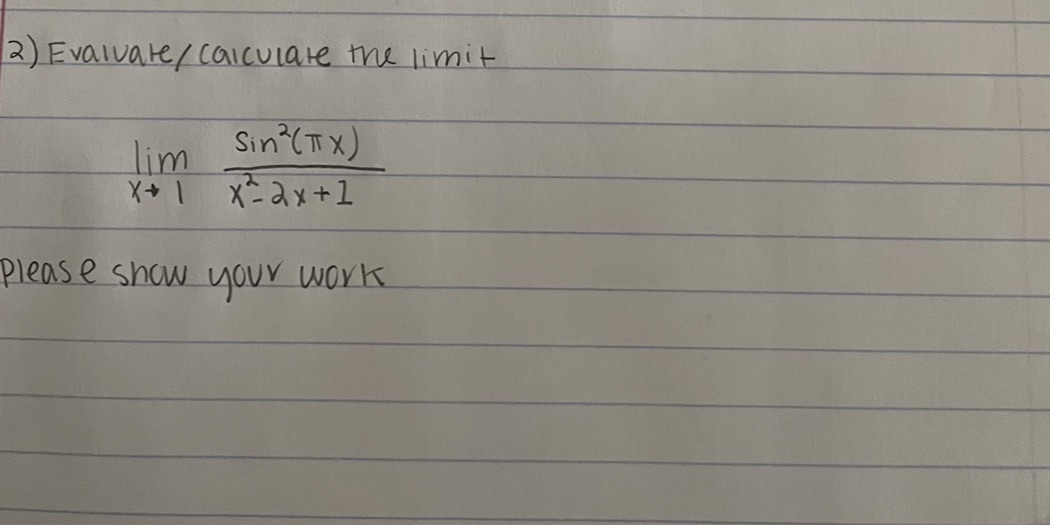 2) Evaluate/calculate the limit
lim sin²(πx)
x→1 x²-2x+1
please show your work